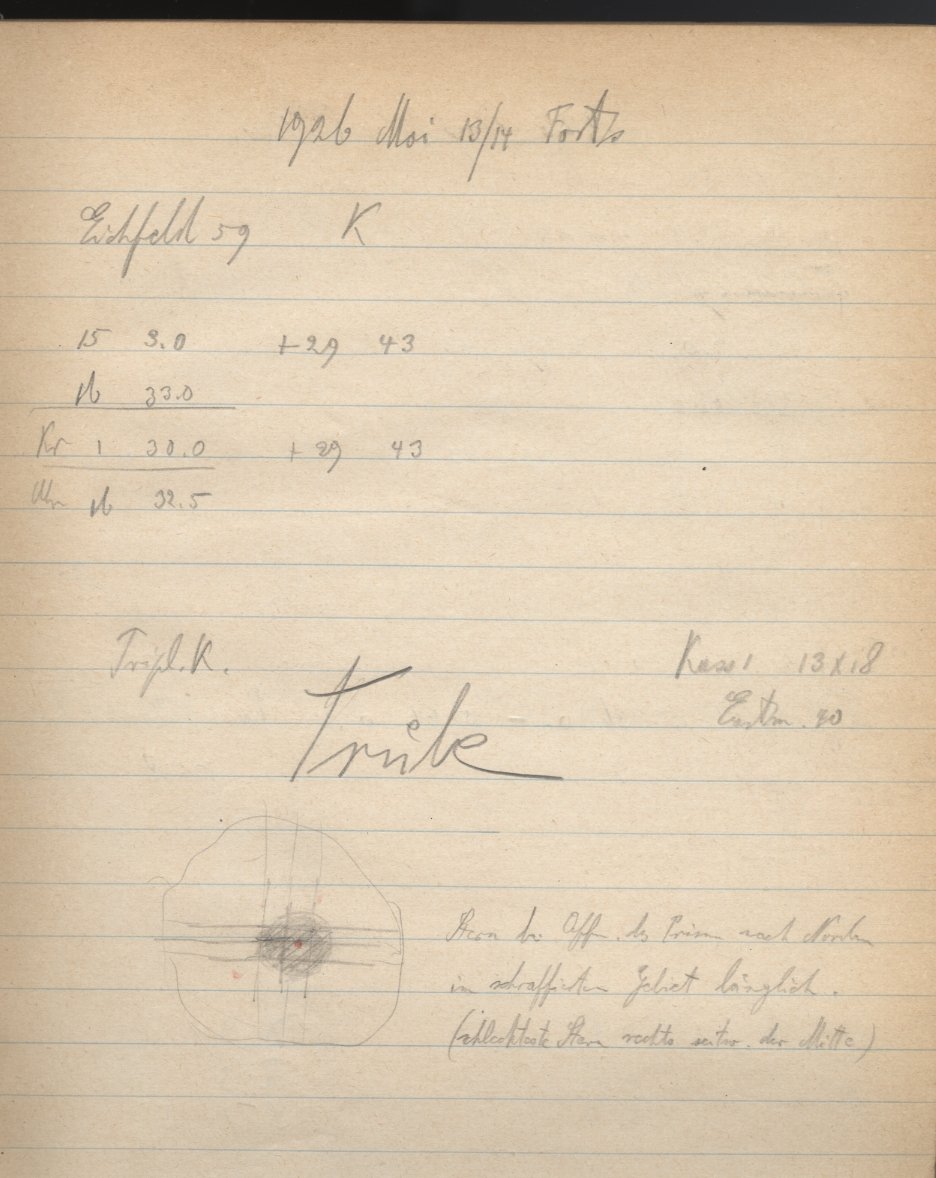 1926 Mai 13/14 Forts
Eichfeld 59 K
15 3.0 +29 43
16 33.0
Kr 1 30.0 +29 43
Uhr 16 32.5
Tripl. K. Kass 1 13x18
Eastm. 40
Trübe
Stern bei Öffn. des Prism nach Norden
im schraffierten Gebiet länglich.
(schlechteste Stern rechts seitw. der Mitte)